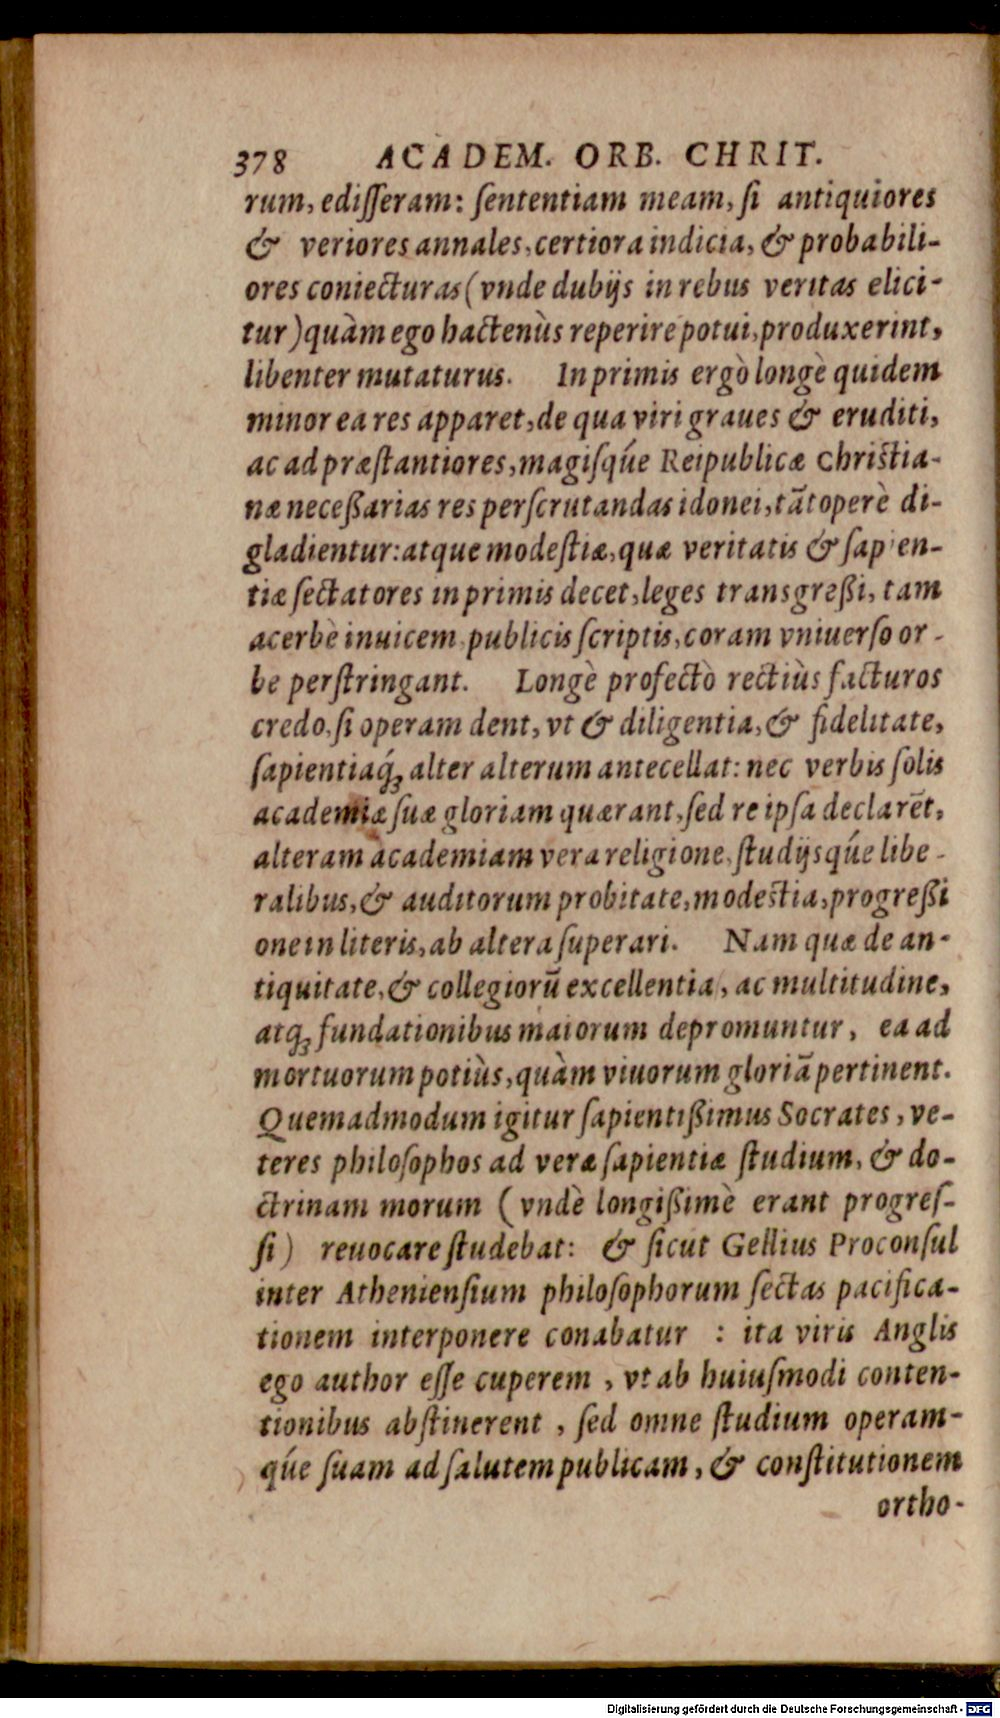 378 ACADEM. ORB. CHRIT.
rum, ediſſeram: ſententiam meam, ſi antiquiores
& veriores annales, certiora indicia, & probabili-
ores coniecturas (vnde dubijs in rebus veritas elici-
tur) quàm ego hactenùs reperire potui, produxerint,
libenter mutaturus. Inprimis ergò longè quidem
minor ea res apparet, de qua viri graues & eruditi,
ac ad præſtantiores, magiſq́ue Reipublicæ Chriſtia-
næ neceßarias res perſcrutandas idonei, tātoperè di-
gladientur: atque modeſtiæ, quæ veritatis & ſapien-
tiæ ſectatores inprimis decet, leges transgreßi, tam
acerbè inuicem, publicis ſcriptis, coram vniuerſo or-
be perſtringant. Longè profectò rectiùs facturos
credo, ſi operam dent, vt & diligentia, & fidelitate,
ſapientiaq́ꝫ alter alterum antecellat: nec verbis ſolis
academiæ ſuæ gloriam quærant, ſed re ipſa declarēt,
alteram academiam vera religione, ſtudijsq́ue libe-
ralibus, & auditorum probitate, modeſtia, progreßi
one in literis, ab altera ſuperari. Nam quæ de an-
tiquitate, & collegiorū excellentia, ac multitudine,
atqꝫ fundationibus maiorum depromuntur, ea ad
mortuorum potiùs, quàm viuorum gloriā pertinent.
Quemadmodum igitur ſapientißimus Socrates, ve-
teres philoſophos ad veræ ſapientiæ ſtudium, & do-
ctrinam morum (vndè longißimè erant progreſ-
ſi) reuocare ſtudebat: & ſicut Gellius Proconſul
inter Athenienſium philoſophorum ſectas pacifica-
tionem interponere conabatur : ita viris Anglis
ego author eſſe cuperem, vt ab huiuſmodi conten-
tionibus abſtinerent, ſed omne ſtudium operam-
q́ue ſuam ad ſalutem publicam, & conſtitutionem
ortho-
Digitalisierung gefördert durch die Deutsche Forschungsgemeinschaft - DFG